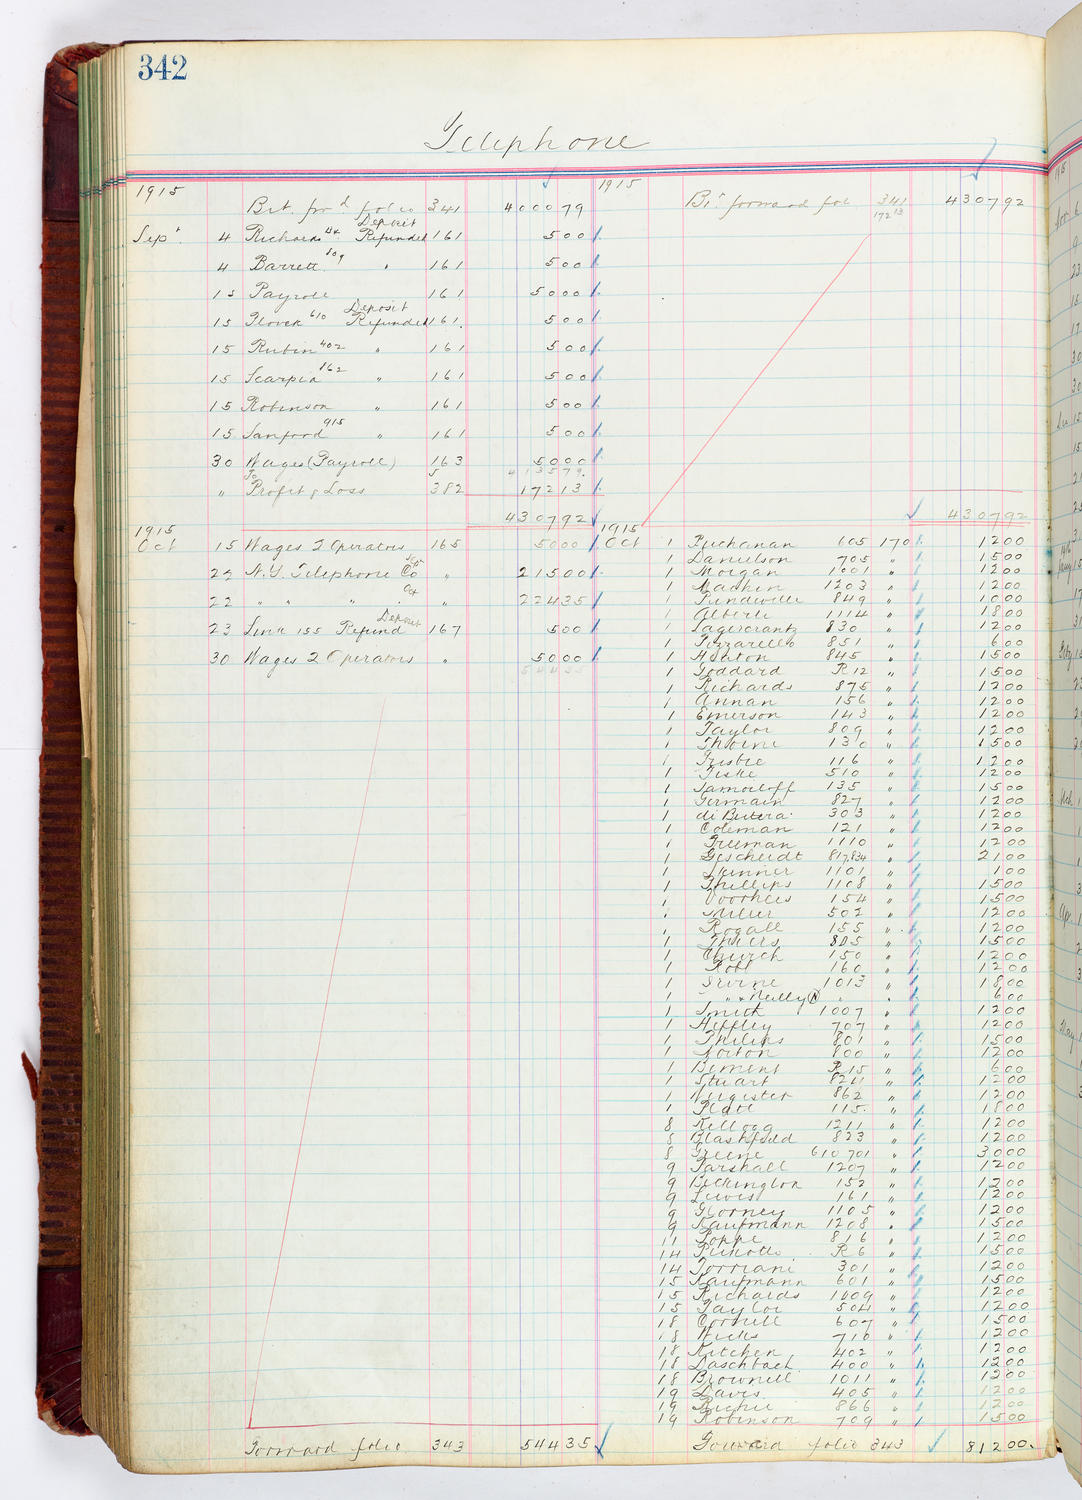 342
Telephone
1915
Brt. for'd folio 341 4000 79
Deposit
Sept. 4 Richards Refunded 161 5 00
4 Barrett 809 " 161 5 00
15 Payroll 161 50 00
Deposit
15 Glover 610 Refunded 161. 5 00
15 Rubin 402 " 161 5 00
15 Scarpia 162 " 161 5 00
15 Robinson " 161 5 00
15 Sanford 915 " 161 5 00
30 Wages (Payroll) 163 50 00
4135 79.
" To Profit & Loss 382 172 13
4307 92
1915
Oct 15 Wages 2 Operators 165 50 00
22 N.Y. Telephone Co Sept " 215 00
Oct
22 " " " " " 224 35
Deposit
23 Linn 155 Refund 167 5 00
30 Wages 2 Operators " 50 00
544 35
Forward folio 343 544 35
1915
Bt. forward fol. 341 4307 92
172 13
4307 92
1915
Oct 1 Buchanan 605 170 12 00
1 Danielson 705 " 15 00
1 Morgan 1001 " 12 00
1 Machen 1203 " 12 00
1 849 " 10 00
1 Alberti 1114 " 18 00
1 Lagercrantz 830 " 12 00
1 Pizzarello 851 " 6 00
1 Horton 845 " 15 00
1 Goddard R12 " 15 00
1 Richards 875 " 12 00
1 Annan 156 " 12 00
1 Emerson 143 " 12 00
1 Taylor 809 " 12 00
1 Thorne 130 " 15 00
1 Frisbie 116 " 12 00
1 Fiske 510 " 12 00
1 Samoiloff 135 " 15 00
1 Germain 827 " 12 00
1 di Butera 303 " 12 00
1 Coleman 121 " 12 00
1 Freeman 1110 " 12 00
1 Gescheidt 817,834 " 21 00
1 Skinner 1101 " 1 00
1 Phillips 1108 " 15 00
1 Voorhees 154 " 15 00
1 Miller 502 " 12 00
1 Rogall 155 " 12 00
1 Thiers 805 " 15 00
1 Church 150 " 12 00
1 Robb 160 " 12 00
1 Irvine 1013 " 18 00
1 " & Reilly (N) " " 6 00
1 Smith 1007 " 12 00
1 Heffley 707 " 12 00
1 Philips 801 " 15 00
1 Norton 800 " 12 00
1 Bement R15 " 6 00
1 Stuart 824 " 12 00
1 862 " 12 00
1 Platt 115 " 18 00
8 Kellogg 1211 " 12 00
8 Blashfield 823 " 12 00
8 Greene 610 701 " 30 00
9 Tarshall 1207 " 12 00
9 Bickington 152 " 12 00
9 Lewis 161 " 12 00
9 Glorney 1105 " 12 00
9 Kaufmann 1208 " 15 00
11 Poppe 816 " 12 00
14 Peixotto R6 " 15 00
14 Torriani 301 " 12 00
15 Kaufmann 601 " 15 00
15 Richards 1009 " 12 00
15 Taylor 504 " 12 00
18 Cornell 607 " 15 00
18 Wicks 710 " 12 00
18 Kitchen 402 " 12 00
18 Daschbach 400 " 12 00
18 Brownell 1011 " 12 00
19 Davis 405 " 12 00
19 Richie 866 " 12 00
19 Robinson 709 " 15 00
Forward folio 343 812 00.